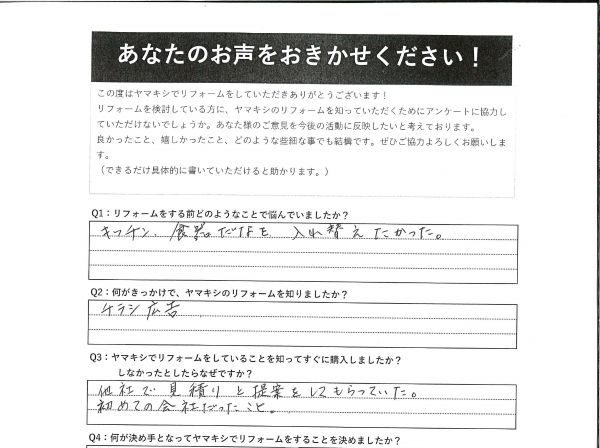 あなたのお声をおきかせください！
この度はヤマキシでリフォームをしていただきありがとうございます！
リフォームを検討している方に、ヤマキシのリフォームを知っていただくためにアンケートに協力し
ていただけないでしょうか。あなた様のご意見を今後の活動に反映したいと考えております。
良かったこと、嬉しかったこと、どのような些細な事でも結構です。ぜひご協力よろしくお願いしま
す。
（できるだけ具体的に書いていただけると助かります。）
Q1：リフォームをする前どのようなことで悩んでいましたか？
キッチン、食器だなを 入れ替えたかった。
Q2：何がきっかけで、ヤマキシのリフォームを知りましたか？
チラシ広告
Q3：ヤマキシでリフォームをしていることを知ってすぐに購入しましたか？
しなかったとしたらなぜですか？
他社で見積りと提案をしてもらっていた。
初めての会社だったこと。
Q4：何が決め手となってヤマキシでリフォームをすることを決めましたか？